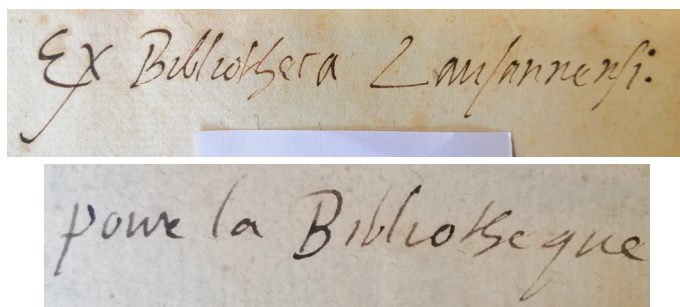 Ex Bibliotheca Lausannensi.
pour la Bibliotheque